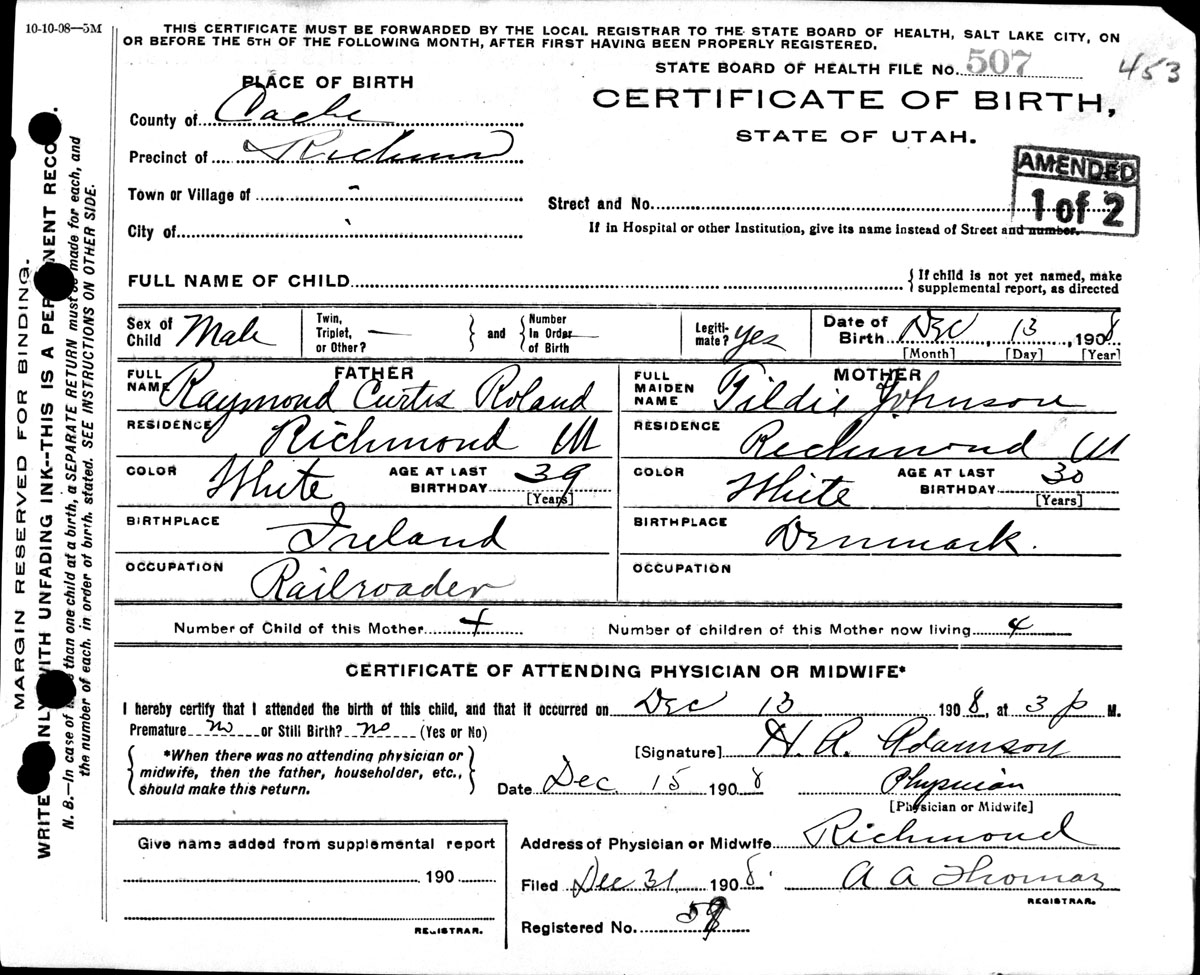 10-10-08—5M
THIS CERTIFICATE MUST BE FORWARDED BY THE LOCAL REGISTRAR TO THE STATE BOARD OF HEALTH, SALT LAKE CITY, ON
OR BEFORE THE 5TH OF THE FOLLOWING MONTH, AFTER FIRST HAVING BEEN PROPERLY REGISTERED.
STATE BOARD OF HEALTH FILE No. 507 453
PLACE OF BIRTH
CERTIFICATE OF BIRTH,
STATE OF UTAH.
County of Cache
Precinct of Richmond
AMENDED
1 of 2
Town or Village of -
Street and No.
City of
If in Hospital or other Institution, give its name instead of Street and number.
FULL NAME OF CHILD
{ If child is not yet named, make
supplemental report, as directed
Sex of Child Male
Twin, Triplet, or Other? — } and { Number in Order of Birth
Legitimate? yes
Date of Birth Dec, 13, 1908
[Month] [Day] [Year]
FATHER
FULL NAME Raymond Curtis Roland
RESIDENCE Richmond U
COLOR White AGE AT LAST BIRTHDAY 39 [Years]
BIRTHPLACE Ireland
OCCUPATION Railroader
MOTHER
FULL MAIDEN NAME Tildie Johnson
RESIDENCE Richmond U
COLOR White AGE AT LAST BIRTHDAY 30 [Years]
BIRTHPLACE Denmark.
OCCUPATION
Number of Child of this Mother 4 Number of children of this Mother now living 4
CERTIFICATE OF ATTENDING PHYSICIAN OR MIDWIFE*
I hereby certify that I attended the birth of this child, and that it occurred on Dec 13 1908, at 3 p M.
Premature no or Still Birth? no (Yes or No)
[Signature] H. A. Adamson
{ *When there was no attending physician or
midwife, then the father, householder, etc.,
should make this return. }
Date Dec. 15 1908 Physician
[Physician or Midwife]
Give name added from supplemental report
190
REGISTRAR.
Address of Physician or Midwife Richmond
Filed Dec 31, 1908. A A Thomas
REGISTRAR.
Registered No.
MARGIN RESERVED FOR BINDING.
WRITE ONLY WITH UNFADING INK--THIS IS A PERMANENT RECO
N. B.—In case of more than one child at a birth, a SEPARATE RETURN must be made for each, and
the number of each, in order of birth, stated. SEE INSTRUCTIONS ON OTHER SIDE.